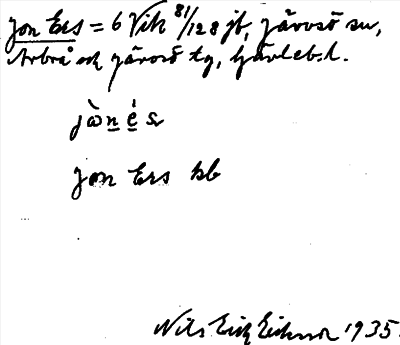 Jon Ers = 6 Vik 81/128 jb, Järvsö sn,
Arbrå och Järvsö tg, Gävleb. l.
jònés
Jon Ers kb
Nils Erik Eriksson 1935.